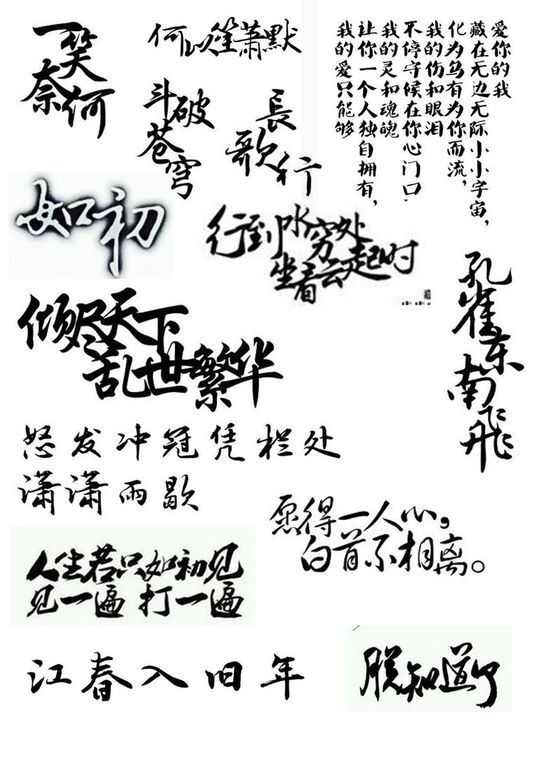 一笑
奈何
何以笙萧默
斗破
苍穹
長
歌行
我的爱只能够
让你一个人独自拥有,
我的灵和魂魄
不停守候在你心门口·
我的伤和眼泪
化为乌有为你而流,
藏在无边无际小小宇宙,
爱你的我
如初
行到水穷处
坐看云起时
孔雀东
南飞
倾尽天下
乱世繁华
怒发冲冠凭栏处
潇潇雨歇
愿得一人心,
白首不相离。
人生若只如初见
见一遍 打一遍
江春入旧年
朕知道了